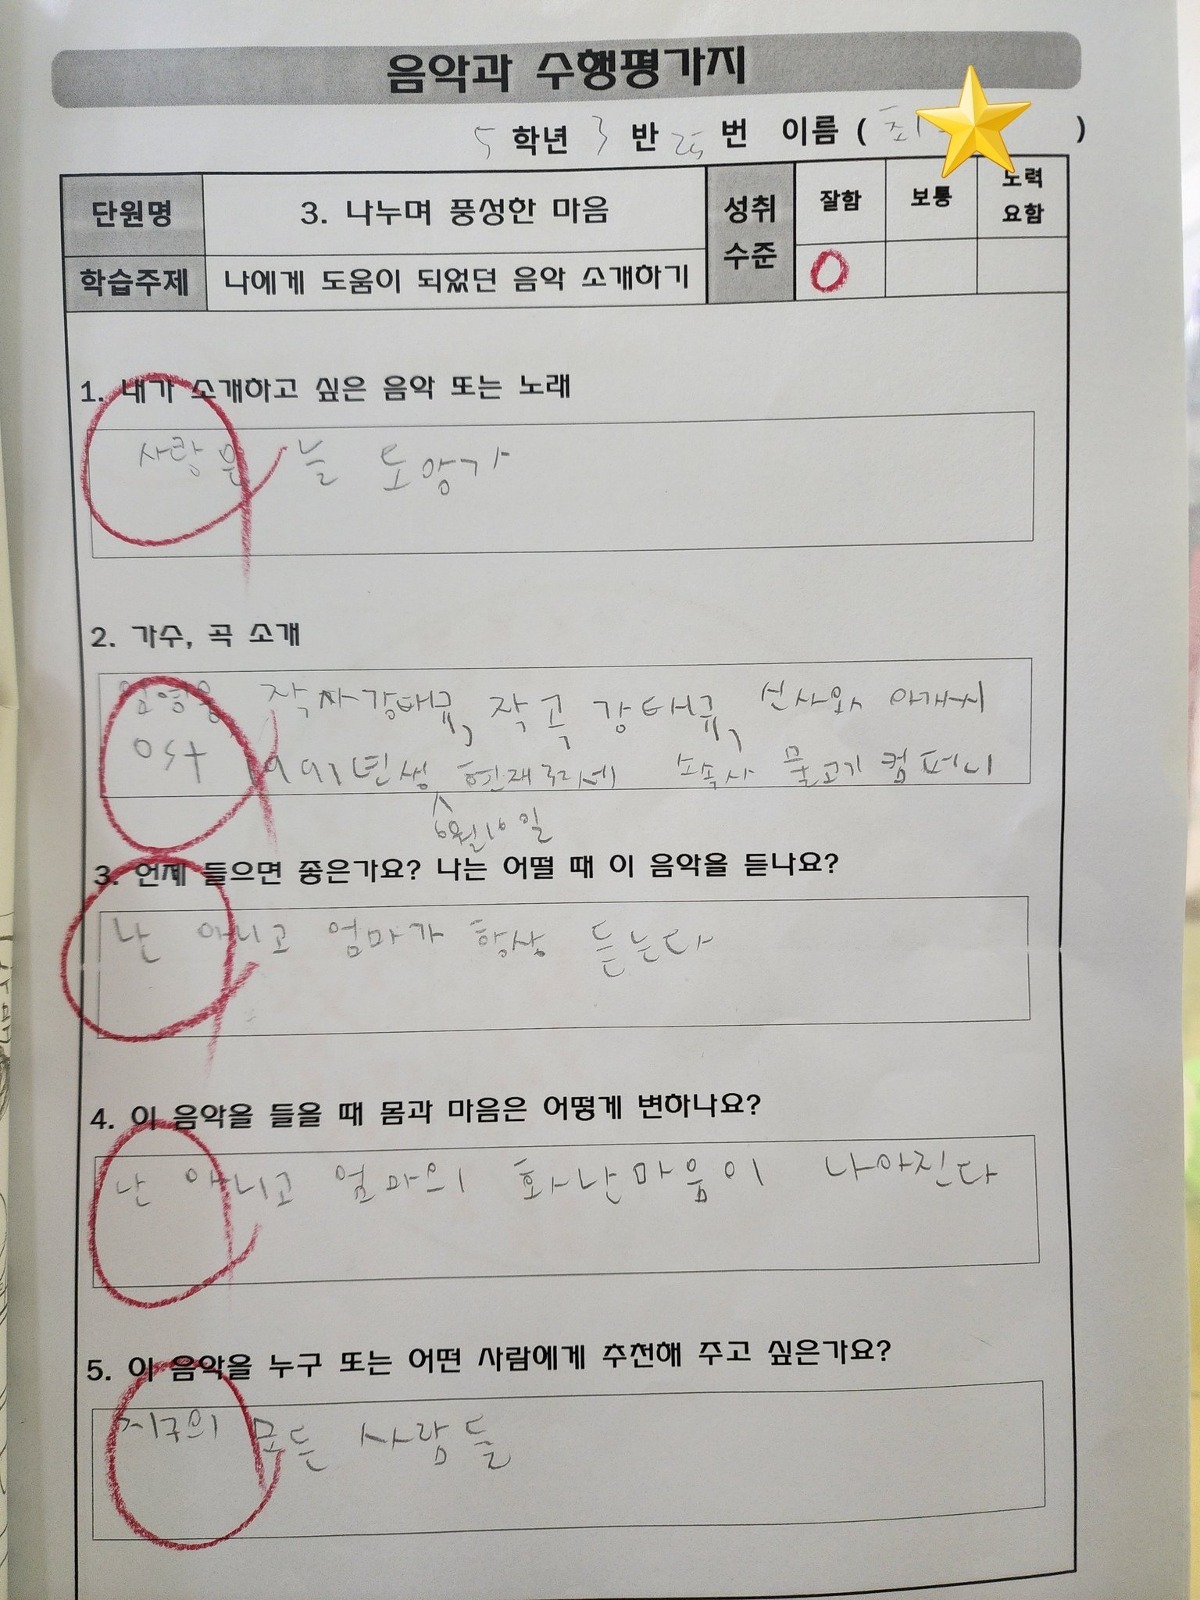 음악과 수행평가지
5 학년 3 반 25 번 이름 ( 최 )
단원명 3. 나누며 풍성한 마음 성취 수준 잘함 보통 노력 요함
학습주제 나에게 도움이 되었던 음악 소개하기
1. 내가 소개하고 싶은 음악 또는 노래
사랑은 늘 도망가
2. 가수, 곡 소개
임영웅 작사강태규, 작곡 강태규, 신사와 아가씨
ost 1991년생 현재 소속사 물고기 컴퍼니
6월16일
3. 언제 들으면 좋은가요? 나는 어떨 때 이 음악을 듣나요?
난 아니고 엄마가 항상 듣는다
4. 이 음악을 들을 때 몸과 마음은 어떻게 변하나요?
난 아니고 엄마의 화난마음이 나아진다
5. 이 음악을 누구 또는 어떤 사람에게 추천해 주고 싶은가요?
지구의 모든 사람들